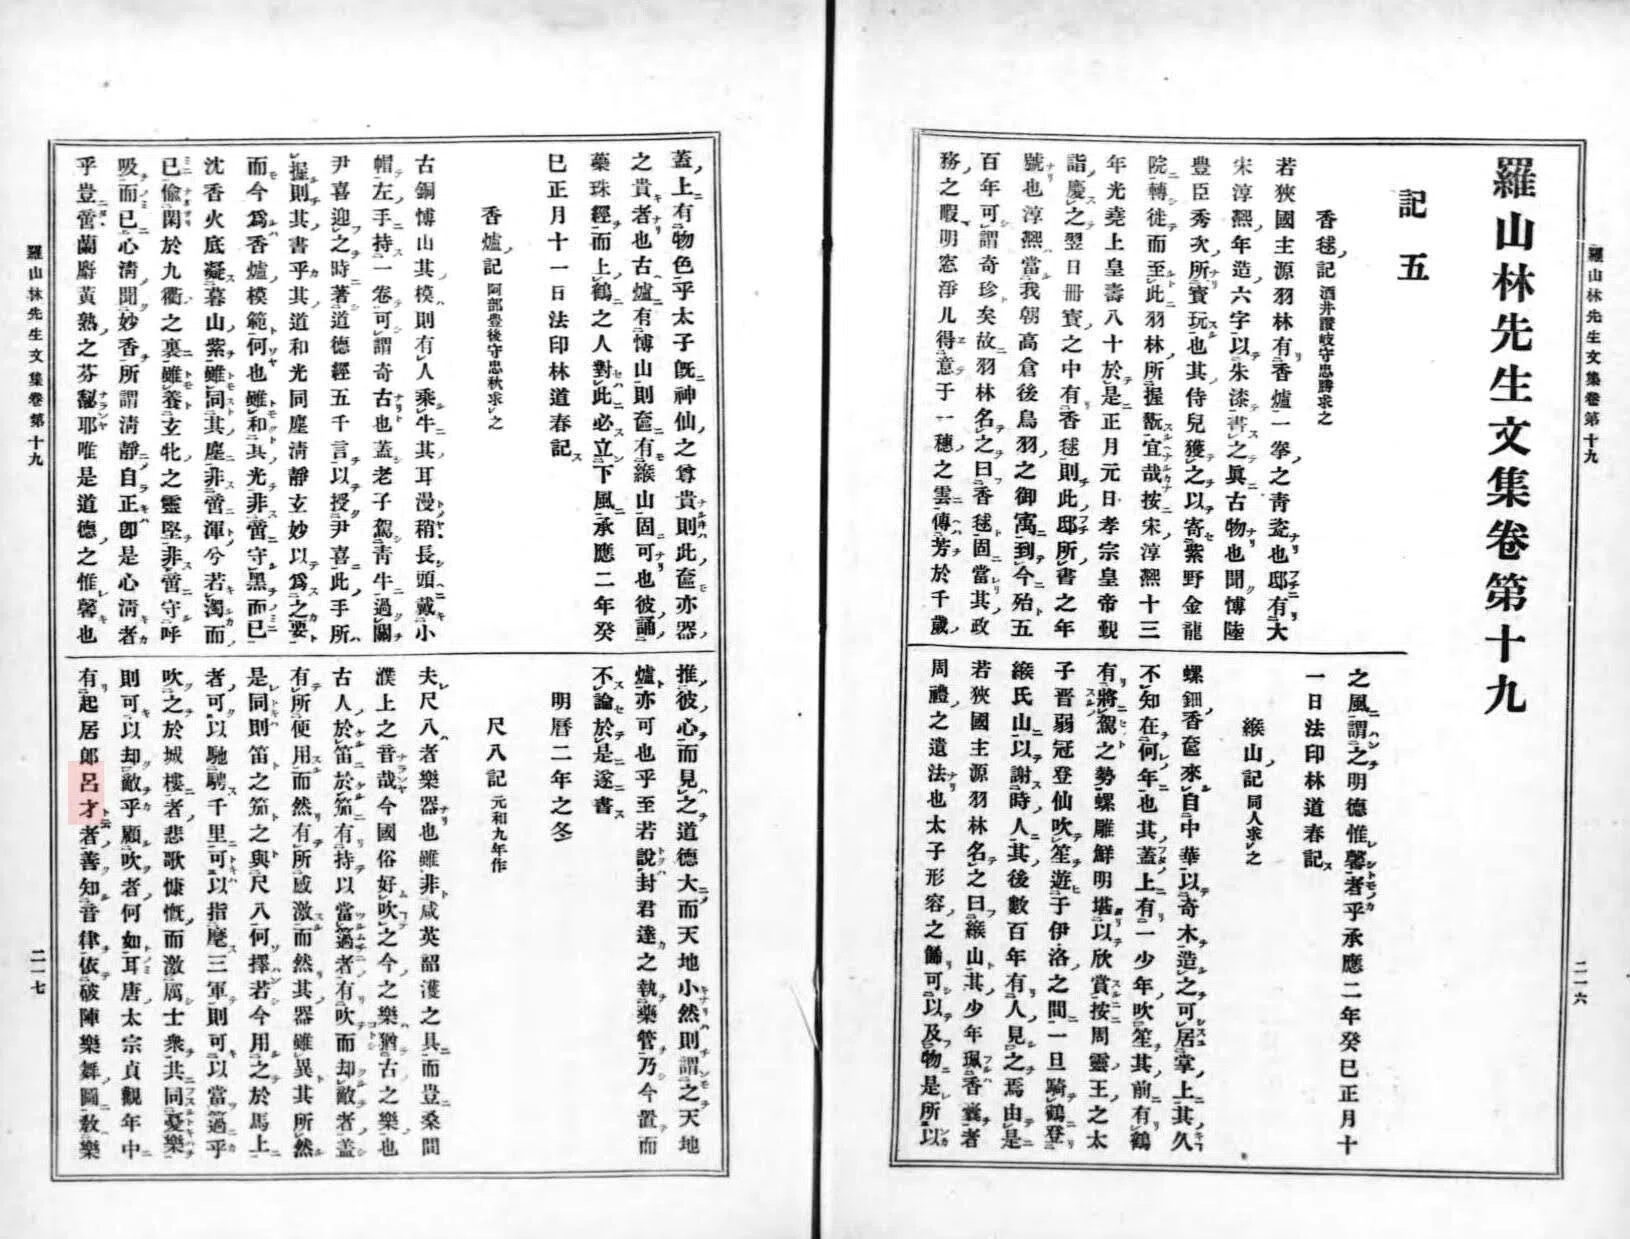 羅山林先生文集卷第十九
二一六
羅山林先生文集卷第十九
記五
香毬記 酒井讚岐守忠勝求之
若狹國主源羽林有香爐一拳之靑瓷也邸有大
宋淳熙年造六字以朱漆書之眞古物也聞博陸
豊臣秀次所寶玩也其侍兒獲之以寄紫野金龍
院轉徙而至此羽林所握翫宜哉按宋淳熙十三
年光堯上皇壽八十於是正月元日孝宗皇帝覲
詣慶之翌日冊寶之中有香毬則此邸所書之年
號也淳熙當我朝高倉後鳥羽之御寓到今殆五
百年可謂奇珍矣故羽林名之曰香毬固當其政
務之暇明窓淨几得意于一穗之雲傳芳於千歲
之風謂之明德惟馨者乎承應二年癸巳正月十
一日法印林道春記
緱山記 同人求之
螺鈿香奩來自中華以奇木造之可居掌上其久
不知在何年也其蓋上有一少年吹笙其前有鶴
有將駕之勢螺雕鮮明堪以欣賞按周靈王之太
子晋弱冠登仙吹笙遊于伊洛之間一旦騎鶴登
緱氏山以謝時人其後數百年有人見之焉由是
若狹國主源羽林名之曰緱山其少年珮香囊者
周禮之遺法也太子形容之餘可以及物是所以
蓋上有物色乎太子旣神仙之尊貴則此奩亦器
之貴者也古爐有博山則奩有緱山固可也彼誦
蘂珠經而上鶴之人對此必立下風承應二年癸
巳正月十一日法印林道春記
香爐記 阿部豊後守忠秋求之
古銅博山其模則有人乘牛其耳漫稍長頭戴小
帽左手持一卷可謂奇古也蓋老子駕靑牛過關
尹喜迎之時著道德經五千言以授尹喜此手所
握則其書乎其道和光同塵淸靜玄妙以爲之要
而今爲香爐模範何也雖和其光非啻守黑而已
沈香火底凝暮山紫雖同其塵非啻渾兮若濁而
已偸閑於九衢之裏雖養玄牝之靈堅非啻守呼
吸而已心淸聞妙香所謂淸靜自正卽是心淸者
乎豈啻蘭麝黃熟之芬馥耶唯是道德之惟馨也
推彼心而見之道德大而天地小然則謂之天地
爐亦可也乎至若說封君達之執藥管乃今置而
不論於是遂書
明曆二年之冬
尺八記 元和九年作
夫尺八者樂器也雖非咸英韶濩之具而豈桑間
濮上之音哉今國俗好吹之今之樂猶古之樂也
古人於笛於笳有持以當簻者有吹而却敵者蓋
有所便用而然有所感激而然其器雖異其所然
是同則笛之笳之與尺八何擇若今用之於馬上
者可以馳騁千里可以指麾三軍則可以當簻乎
吹之於城樓者悲歌慷慨而激厲士衆共同憂樂
則可以却敵乎顧吹者何如耳唐太宗貞觀年中
有起居郎呂才者善知音律依破陣樂舞圖敎樂
羅山林先生文集卷第十九
二一七